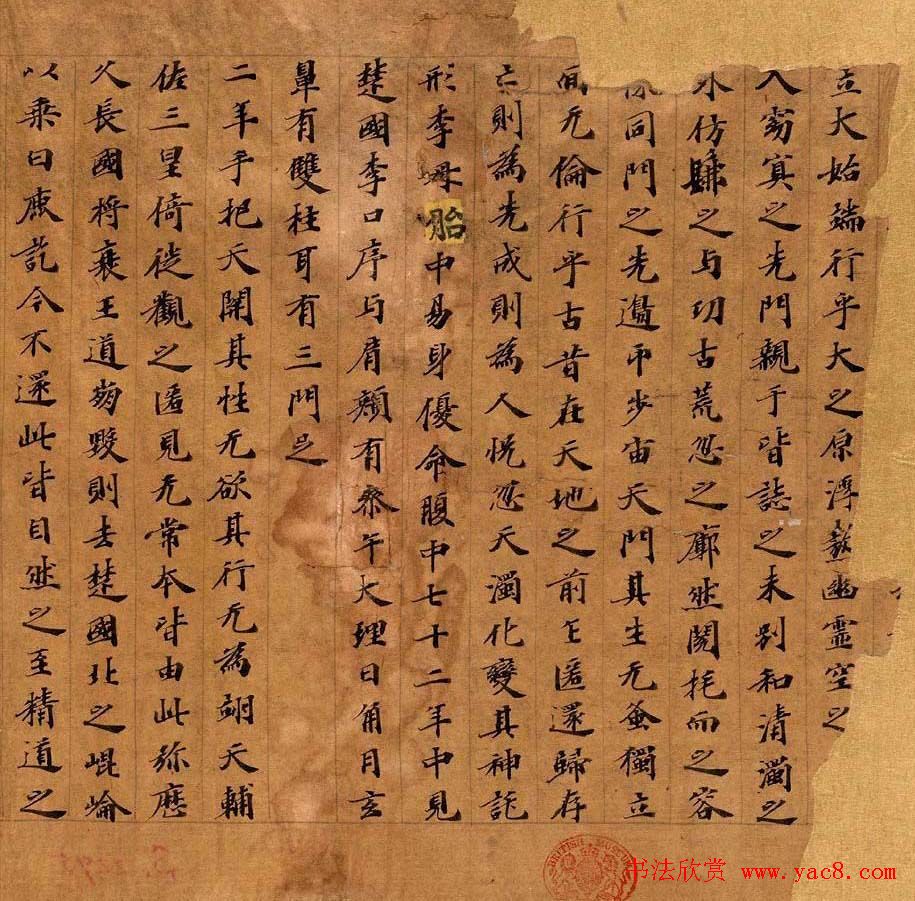 立大始端行乎大之原浮熬幽靈空之
入窈冥之先門親乎皆誌之未別和清濁之
仿之与功古荒忽之廓然而之容
同門之先邊帀步宙天門其生无蚤獨立
而无倫行乎古昔在天地之前乍匿還歸存
亡則為先成則為人恍忽天濁化變其神託
形李母胎中易身優命腹中七十二年中見
楚國李口序与肩頰有參午大理日角月玄
鼻有雙柱耳有三門足
二年乎把天關其性无欲其行无為翊天輔
佐三皇倚徙觀之匿見无常本皆由此弥歷
久長國將衰王道崩毀則去楚國北之崐崘
以乘白鹿訖今不還此皆自然之至精道之
BRITISH MUSEUM
书法欣赏 www.yac8.com